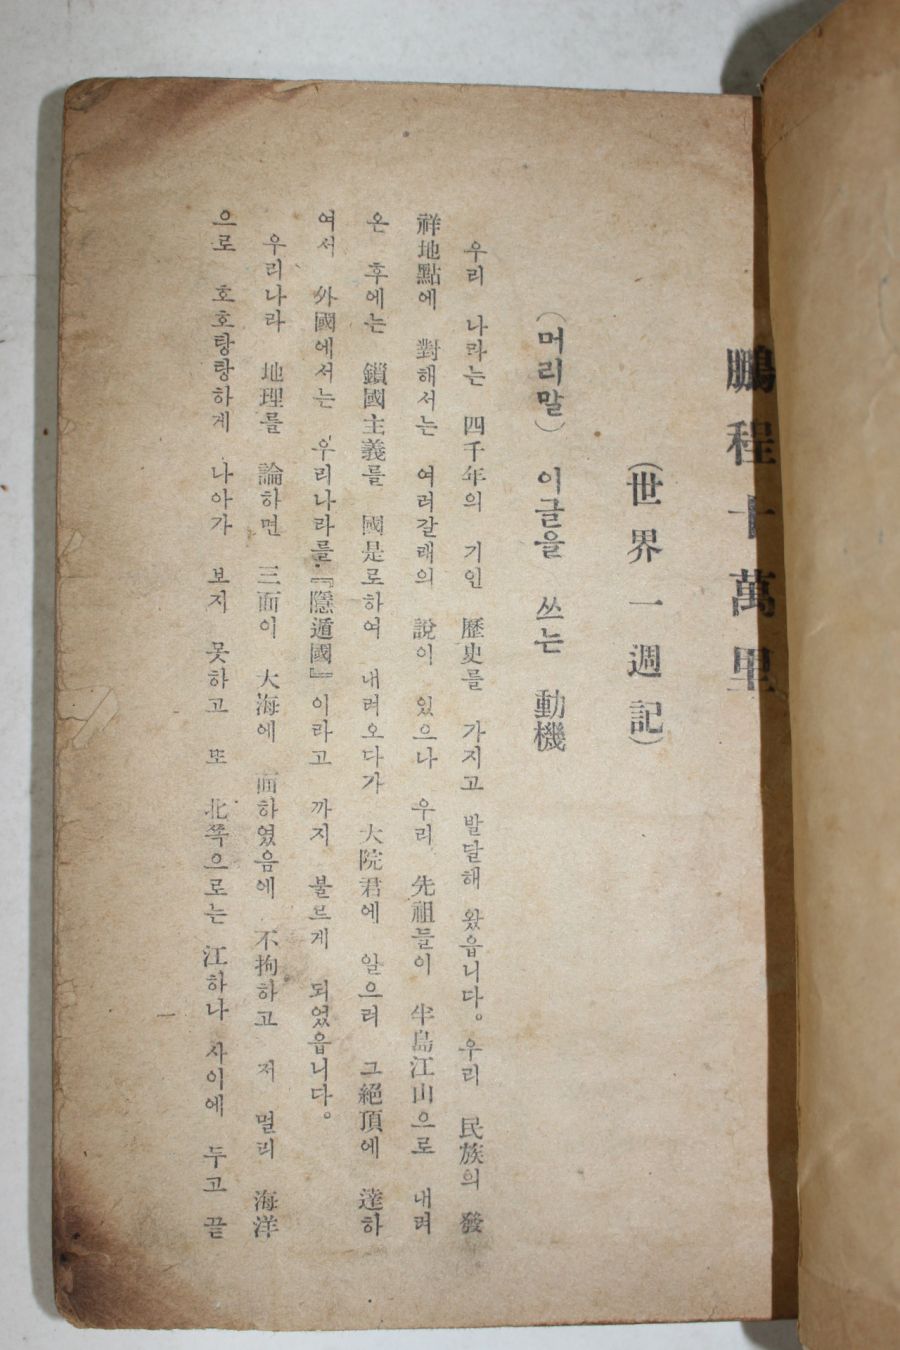 鵬程十萬里
(世界一週記)
(머리말) 이글을 쓰는 動機
우리 나라는 四千年의 기인 歷史를 가지고 발달해 왔읍니다。우리 民族의 發
祥地點에 對해서는 여러갈래의 說이 있으나 우리 先祖들이 半島江山으로 내려
온 후에는 鎖國主義를 國是로하여 내려오다가 大院君에 일으러 그絕頂에 達하
여서 外國에서는 우리나라를『隱遁國』이라고 까지 불르게 되었읍니다。
우리나라 地理를 論하면 三面이 大海에 面하였음에 不拘하고 저 멀리 海洋
으로 호호탕탕하게 나아가 보지 못하고 또 北쪽으로는 江하나 사이에 두고 끝